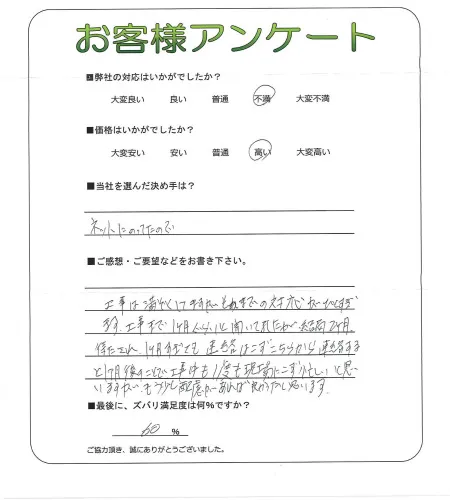 お客様アンケート
■弊社の対応はいかがでしたか？
大変良い 良い 普通 不満 大変不満
■価格はいかがでしたか？
大変安い 安い 普通 高い 大変高い
■当社を選んだ決め手は？
ネットにのってたので
■ご感想・ご要望などをお書き下さい。
工事は 早くして それまでの対応が
工事まで1ヶ月くらいと聞いてたのが 結局2ヶ月
待たされ、1ヶ月すぎても連絡はこずこちらから連絡する
と1ヶ月後 工事中も1度も現場にこず忙しいと思い
いますが もう少し配慮があれば良かったと思います。
■最後に、ズバリ満足度は何％ですか？
60 ％
ご協力頂き、誠にありがとうございました。